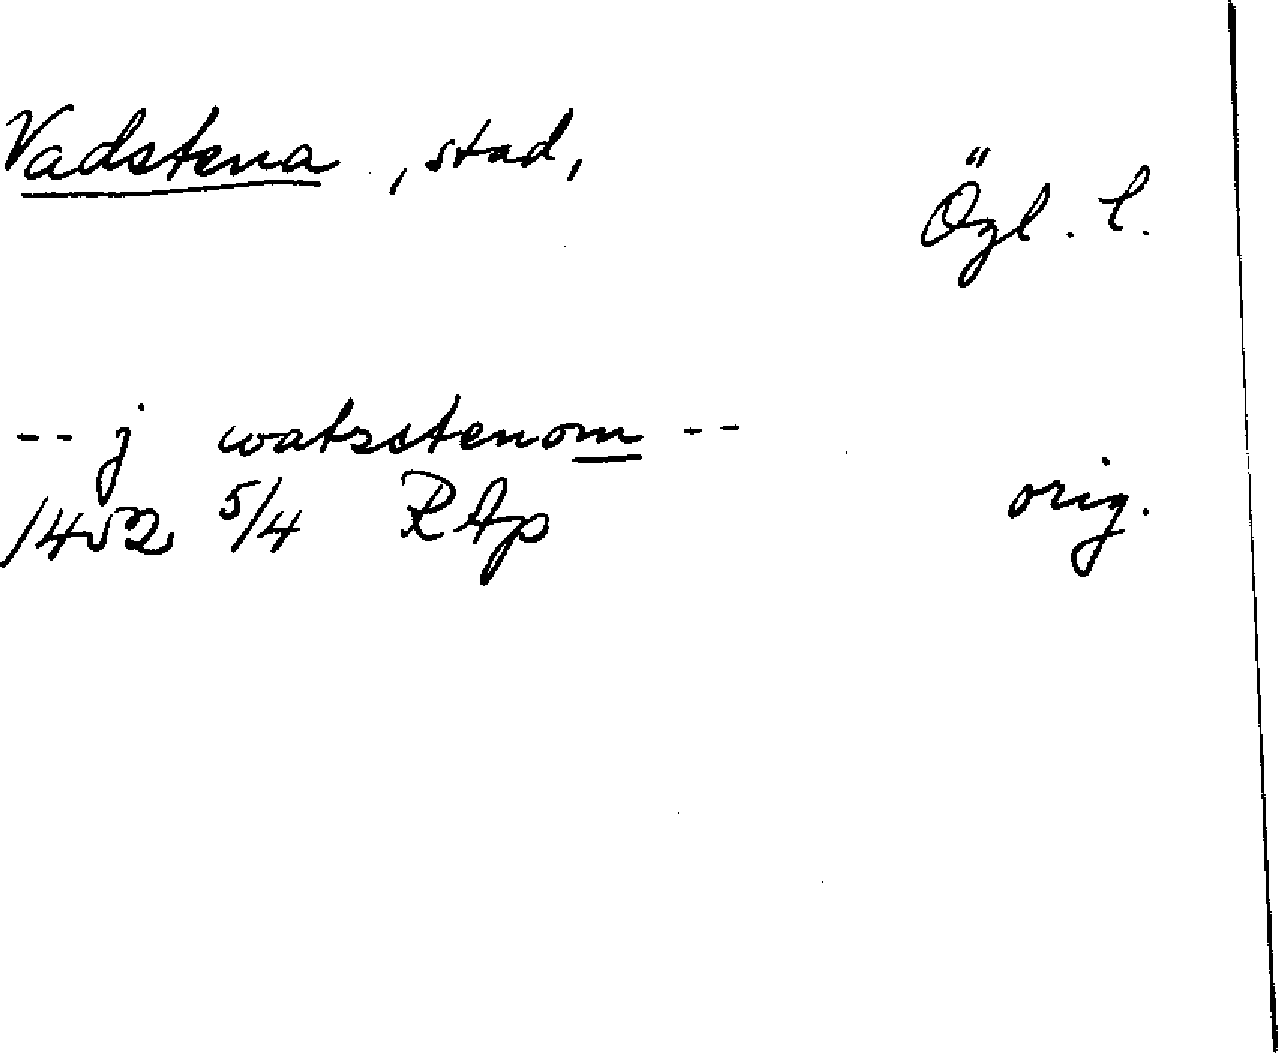 Vadstena, stad,
Ögl. l.
-- j watzstenom --
1452 5/4 RAp
orig.